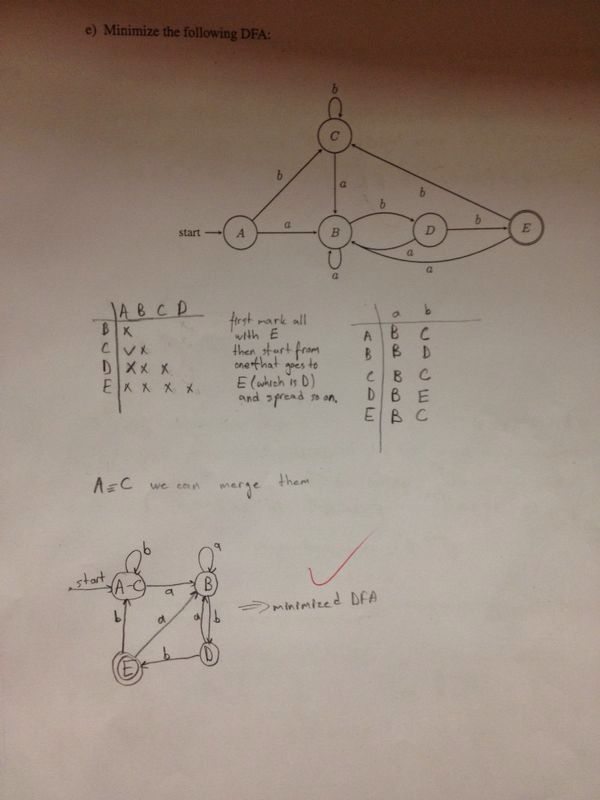 e) Minimize the following DFA:
b
C
b
a
b
start
A
a
B
b
D
b
E
a
a
a
A B C D
B x
C ✓ x
D x x x
E x x x x
first mark all
with E
then start from
one that goes to
E (which is D)
and spread so on.
a b
A B C
B B D
C B C
D B E
E B C
A≡C we can merge them
b
a
start
A-C
a
B
b
a
a
b
⇒ minimized DFA
E
b
D